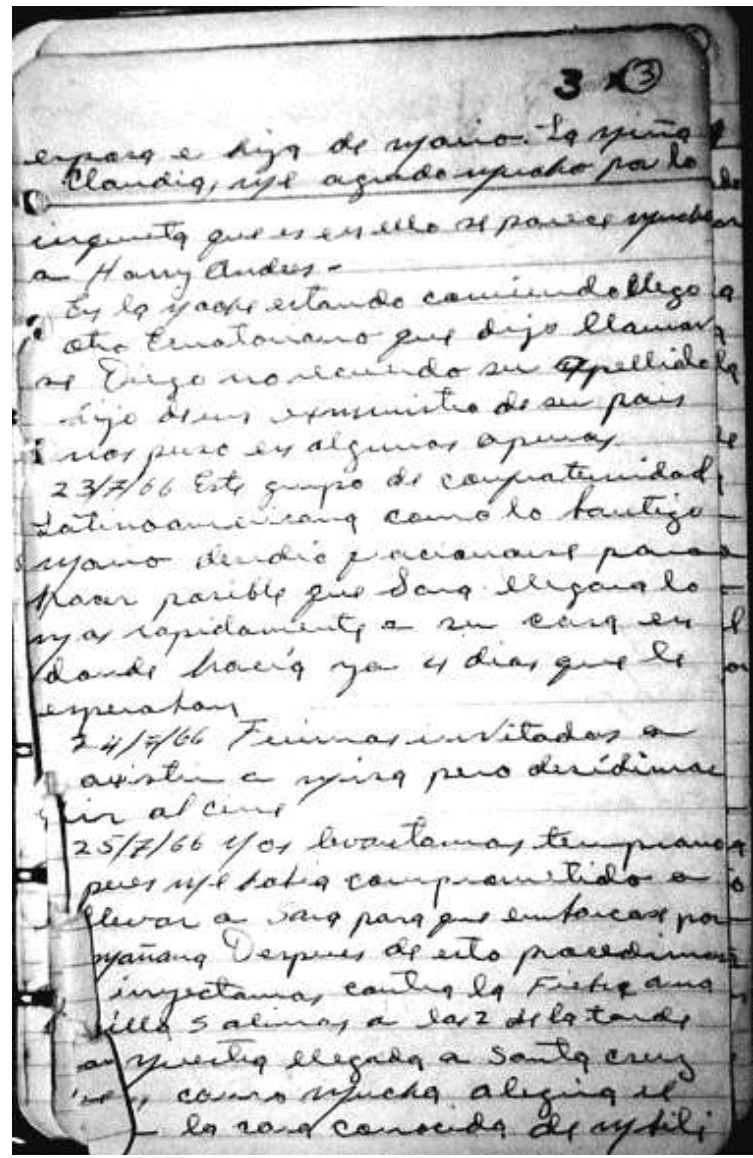 3 ③
esposa e hija de Mario. La niña
Claudia, me agrado mucho por lo
inquieta que es en ello se parece mucho
a Harry Andres -
En la noche estando comiendo llego
otro Ecuatoriano que dijo llamar
se Diego no recuerdo su apellido
hijo de un exministro de su pais
nos puso en algunos apuros
23/7/66 Este grupo de confraternidad
Latinoamericana como lo bautizo
Mario decidio para
hacer posible que Sara llegara lo
mas rapidamente a su casa en
donde hacia ya 4 dias que le
esperaban
24/7/66 Fuimos invitados a
asistir a misa pero decidimos
ir al cine
25/7/66 Nos levantamos temprano
pues me habia comprometido a
llevar a Sara para que embarcase por
mañana Despues de esto procedimos
inyectamos contra la Fiebre ama
rilla Salimos a las 2 de la tarde
nuestra llegada a Santa cruz
como mucha alegria
la conocida de